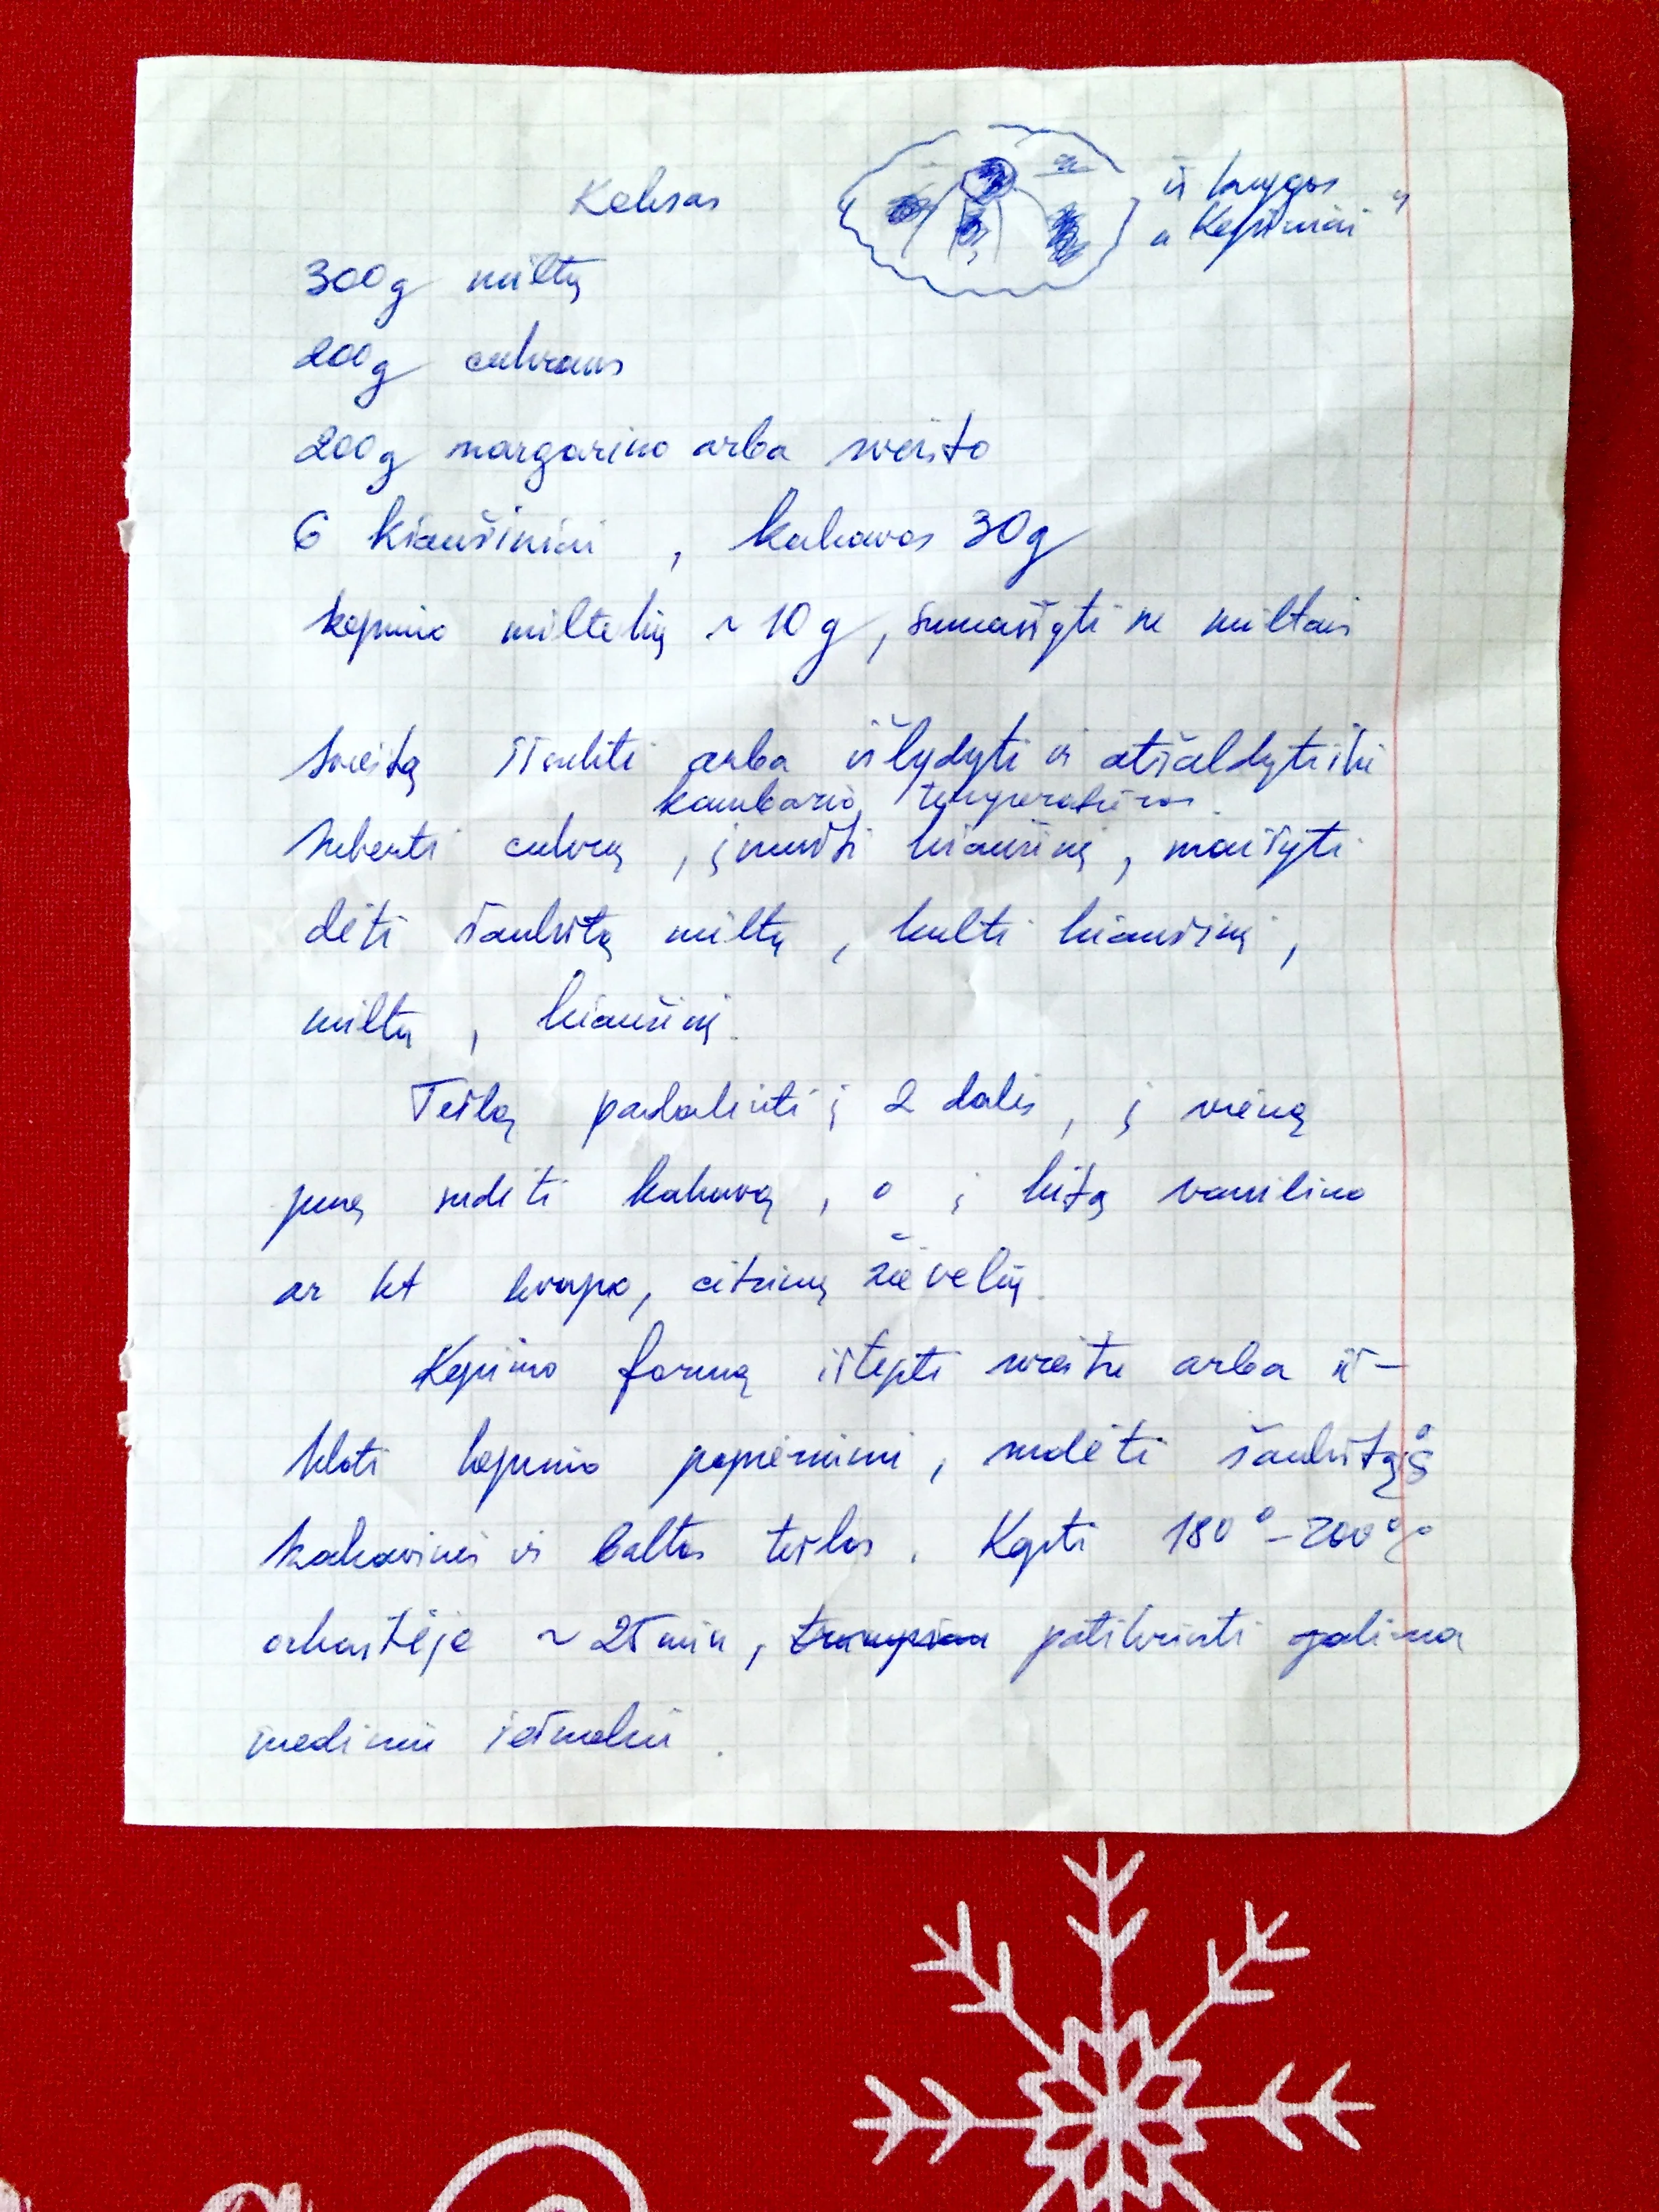 Keksas
iš knygos
„Kepiniai“
300g miltų
200g cukraus
200g margarino arba sviesto
6 kiaušiniai, kakavos 30g
kepimo miltelių ~10g, sumaišyti su miltais
Sviestą išsukti arba išlydyti ir atšaldyti iki
kambario temperatūros.
Suberti cukrų, įmušti kiaušinį, maišyti
dėti šaukštą miltų, kulti kiaušinį,
miltų, kiaušinį.
Tešlą padalinti į 2 dalis, į vieną
pusę sudėti kakavą, o į kitą vanilino
ar kt kvapo, citrinų žievelių.
Kepimo formą ištepti sviestu arba iš-
kloti kepimo popieriumi, sudėti šaukštą
kakavinės ir baltos tešlos. Kepti 180°-200°
orkaitėje ~25min, patikrinti galima
mediniu iešmeliu.